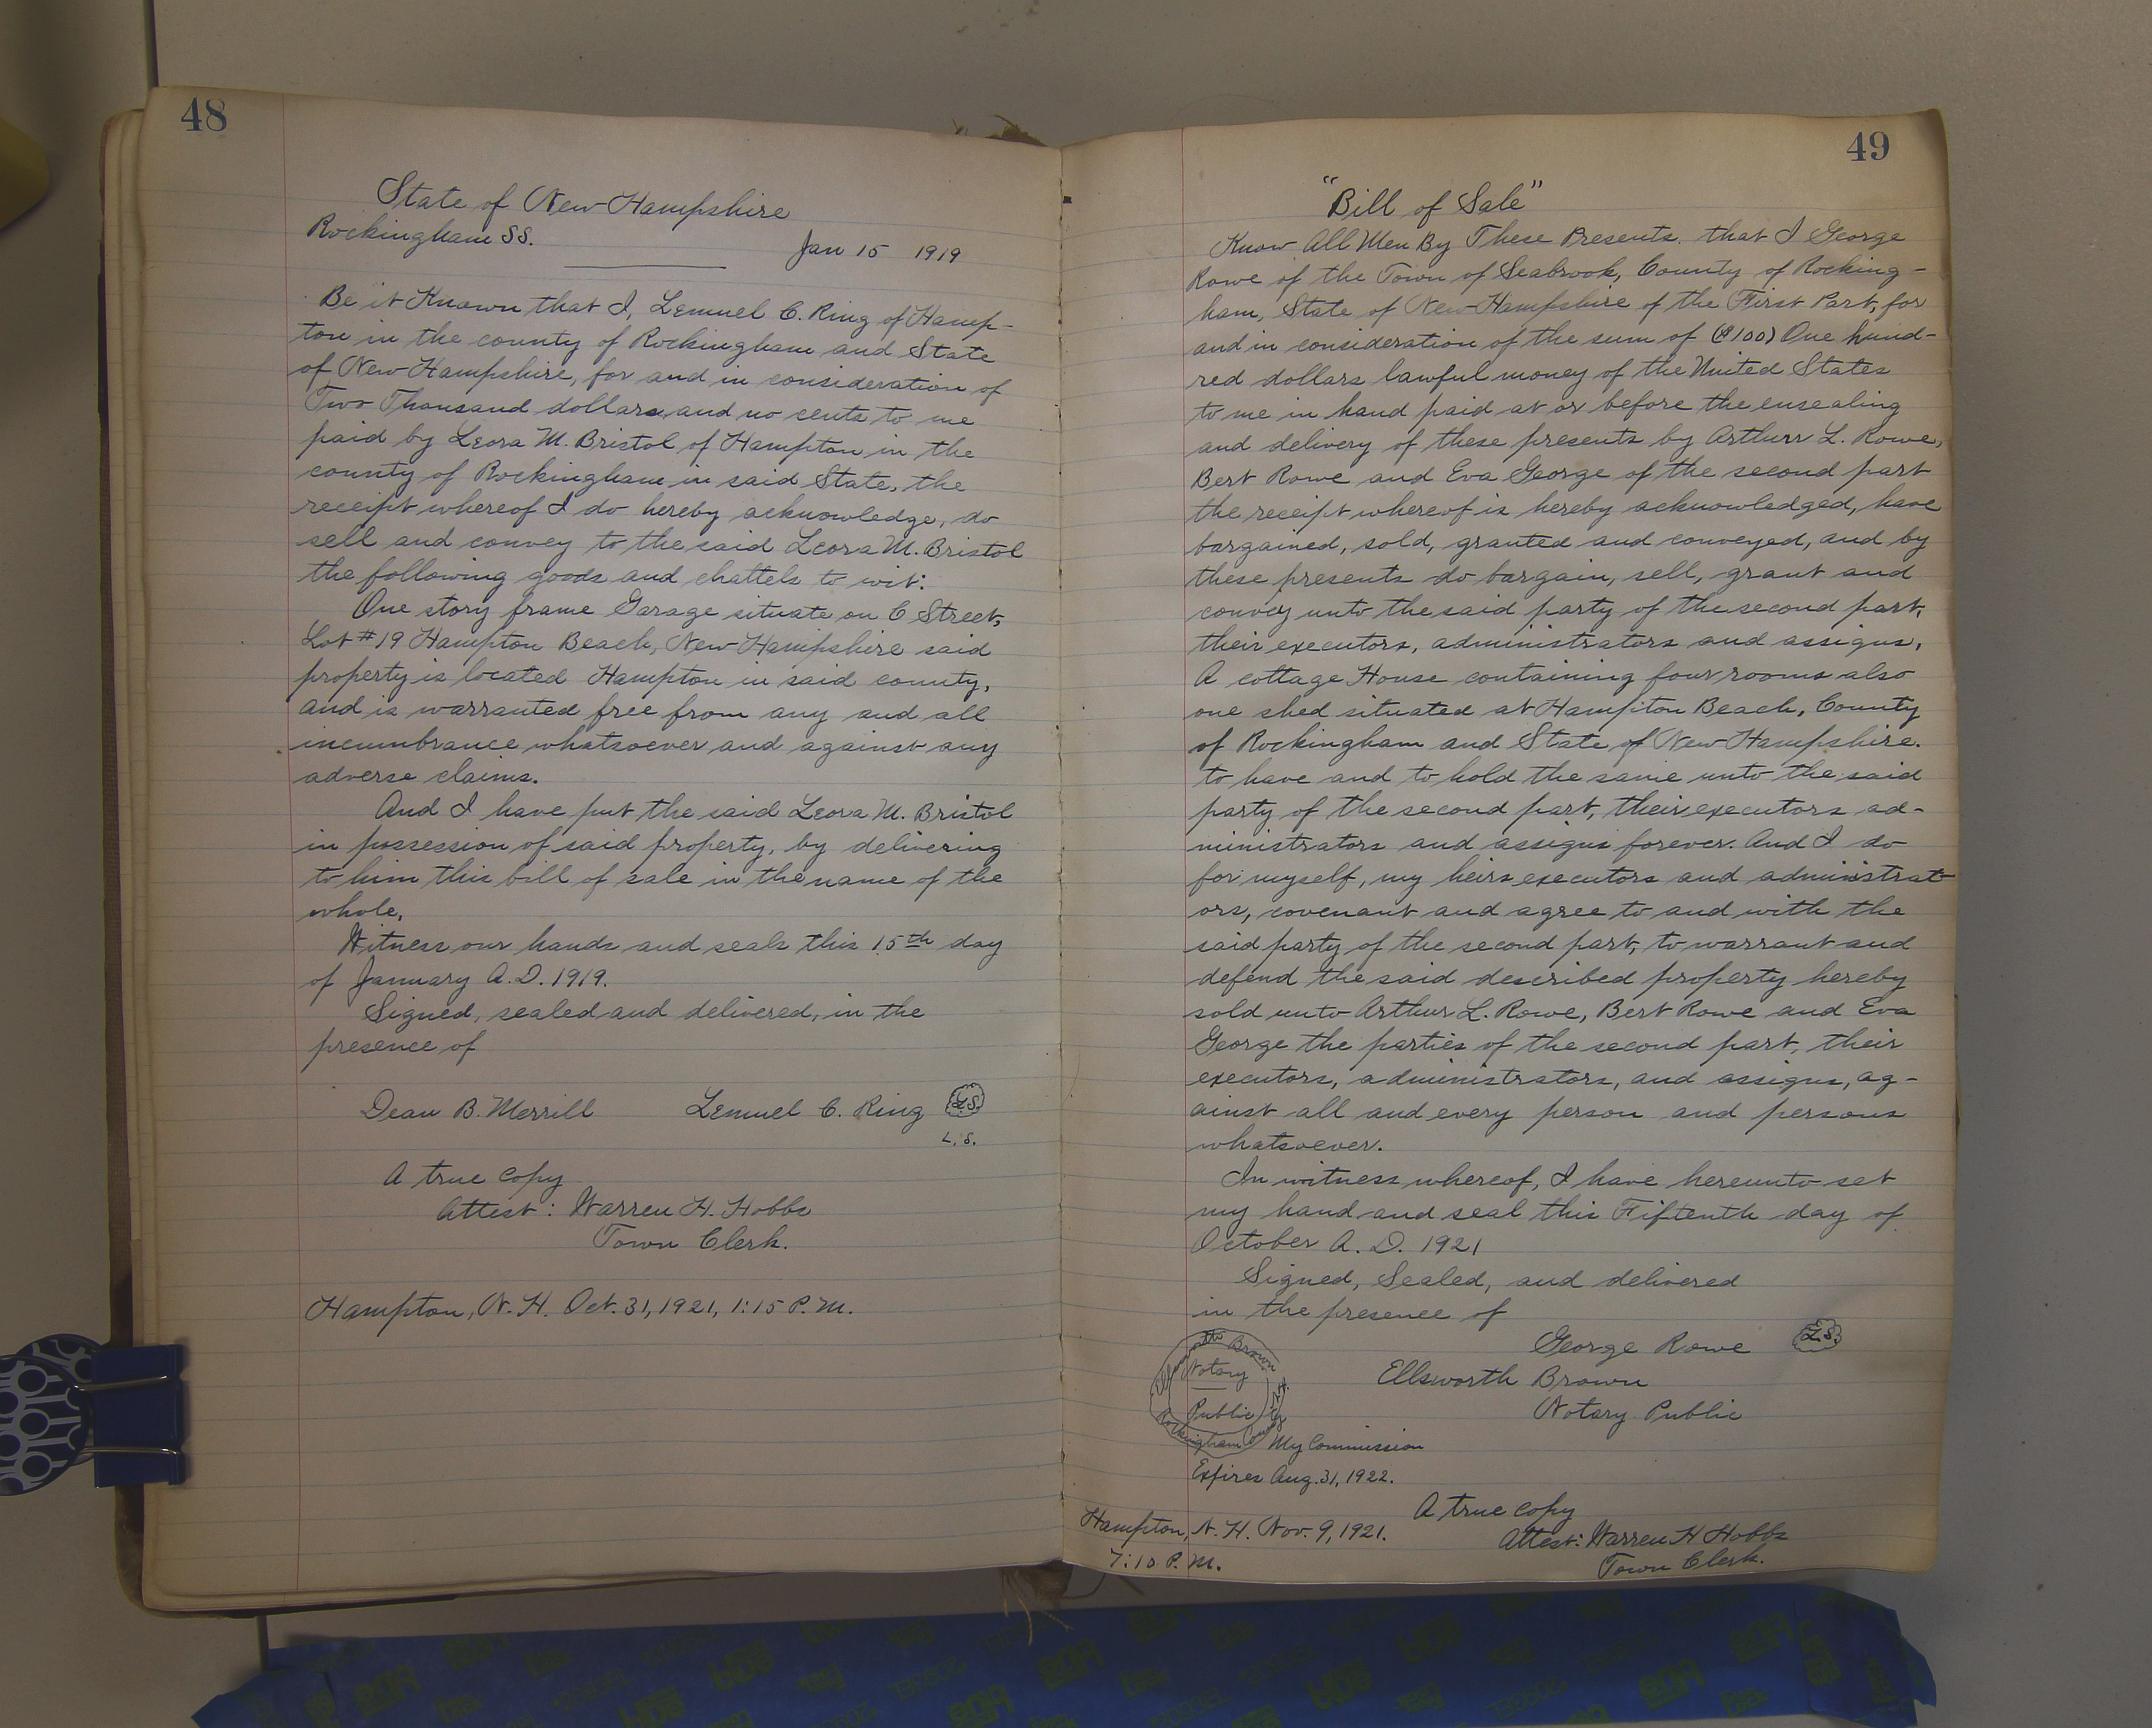 48
State of New Hampshire
Rockingham SS.
Jan 15 1919
Be it Known that I, Lemuel C. Ring of Hamp-
ton in the county of Rockingham and State
of New Hampshire, for and in consideration of
Two Thousand dollars and no cents to me
paid by Leora M. Bristol of Hampton in the
county of Rockingham in said State, the
receipt whereof I do hereby acknowledge, do
sell and convey to the said Leora M. Bristol
the following goods and chattels to wit:
One story frame Garage situate on C Street,
Lot #19 Hampton Beach, New Hampshire said
property is located Hampton in said county,
and is warranted free from any and all
incumbrance whatsoever and against any
adverse claims.
And I have put the said Leora M. Bristol
in possession of said property, by delivering
to him this bill of sale in the name of the
whole.
Witness our hands and seals this 15th day
of January A.D. 1919.
Signed, sealed and delivered, in the
presence of
Dean B. Merrill Lemuel C. Ring L.S.
L.S.
A true copy
Attest: Warren H. Hobbs
Town Clerk.
Hampton, N.H. Oct. 31, 1921, 1:15 P.M.
49
"Bill of Sale"
Know All Men By These Presents. that I George
Rowe of the Town of Seabrook, County of Rocking-
ham, State of New Hampshire of the First Part, for
and in consideration of the sum of ($100) One hund-
red dollars lawful money of the United States
to me in hand paid at or before the ensealing
and delivery of these presents by Arthur L. Rowe,
Bert Rowe and Eva George of the second part
the receipt whereof is hereby acknowledged, have
bargained, sold, granted and conveyed, and by
these presents do bargain, sell, grant and
convey unto the said party of the second part,
their executors, administrators and assigns,
A cottage House containing four rooms also
one shed situated at Hampton Beach, County
of Rockingham and State of New Hampshire.
to have and to hold the same unto the said
party of the second part, their executors ad-
ministrators and assigns forever. And I do
for myself, my heirs executors and administrat-
ors, covenant and agree to and with the
said party of the second part, to warrant and
defend the said described property hereby
sold unto Arthur L. Rowe, Bert Rowe and Eva
George the parties of the second part, their
executors, administrators, and assigns, ag-
ainst all and every person and persons
whatsoever.
In witness whereof, I have hereunto set
my hand and seal this Fiftenth day of
October A.D. 1921
Signed, Sealed, and delivered
in the presence of
George Rowe L.S.
Ellsworth Brown
Notary Public
Ellsworth Brown
Notary
Public
Rockingham County N.H.
My Commission
Expires Aug. 31, 1922.
A true copy
Hampton, N.H. Nov. 9, 1921.
Attest: Warren H Hobbs
7:10 P.M.
Town Clerk.